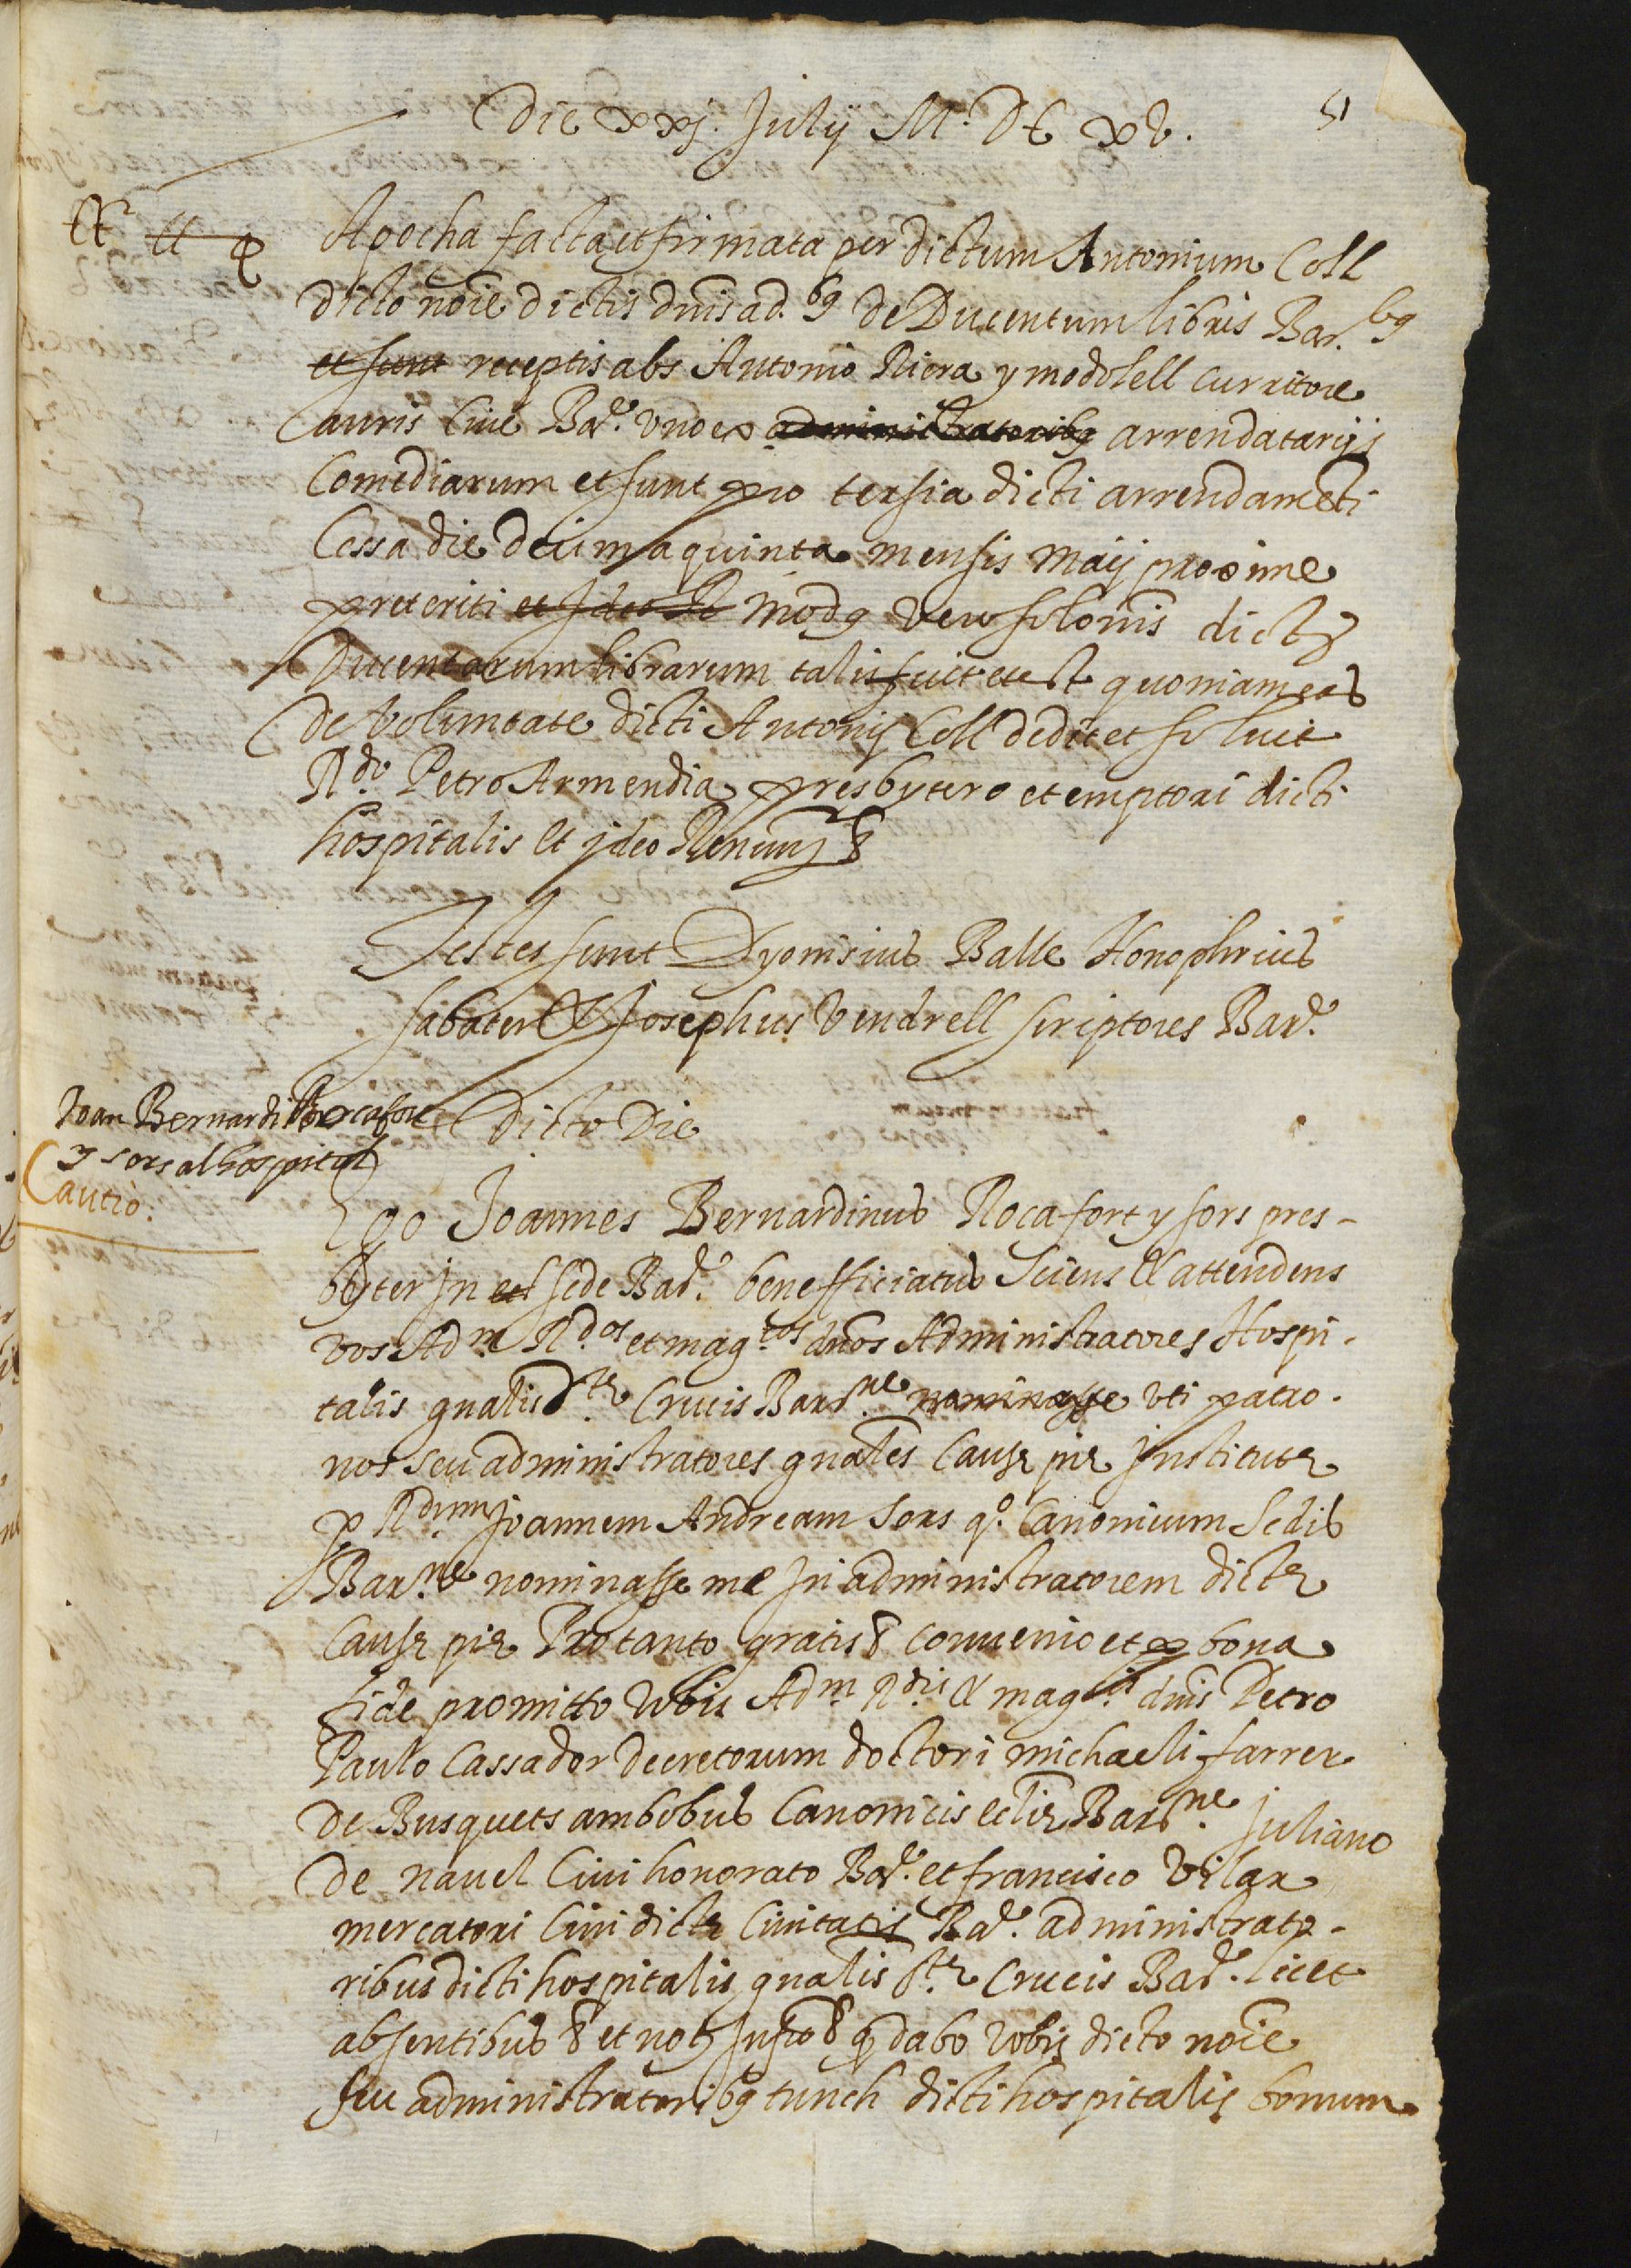 51
Die xxj. Julij M. DC xv.
Apocha facta et firmata per dictum Antonium Coll
dicto noīe dictis dn̄is ad.bꝰ de Ducentum libris Bar.bꝰ
et sunt receptis abs Antonio Riera y modolell curritore
auris Ciue Bar.e vno ex administratoribꝰ arrendatarijs
Comediarum et sunt pro tersia dicti arrendamēti
Cessa die decima quinta mensis Maij proxime
preteriti et Ideo Re modꝰ vero solonis dictę
Ducentarum librarum talis fuit et est quoniam eas
de voluntate dicti Antonij Coll dedit et soluit
R.do Petro Armendia presbytero et emptori dicti
hospitalis et ideo Renun̄
Testes sunt Dyonisius Balle Honophrius
sabater & Josephus Vendrell scriptores Bar.e
Joan Bernardi Rocafort
y sors al hospital
Cautio.
Dicto Die
Ego Joannes Bernardinus Rocafort y sors pres-
byter in sede Bar.e benefficiatus Sciens & attendens
vos Adm R.dos et mag.cos dn̄os Administratores Hospi-
talis gn̄alis S.tę Crucis Barne nominasse vti patro-
nos seu administratores gn̄ales Causę pię Institutę
ꝑ R.dum Joannem Andream Sors q.o Canonicum Sedis
Bar.ne nominasse me in administratorem dictę
Causę pię Pro tanto gratis & conuenio et ꝑ bona
fide promitto vobis Adm R.dis & mag.cis dn̄is Petro
Paulo Cassador decretorum doctori michaeli farrer
de Busquets ambobus Canonicis ecl̄ię Bar.ne Juliano
de navel Ciui honorato Bar.e et francisco Vilar
mercatori Ciui dictę Ciuitatis Bar.e administrato-
ribus dicti hospitalis gn̄alis S.tę Crucis Bar.e licet
absentibus & et not.o infro & ꝙ dabo vobis dicto noīe
seu administratoribꝰ tunch dicti hospitalis bonum